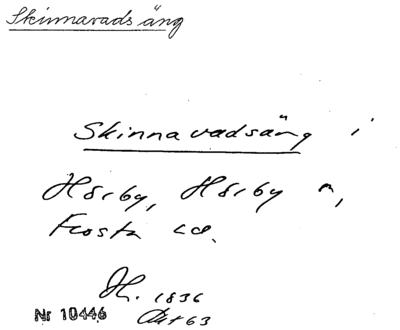 Skinnavadsäng
Skinnavadsäng i
Hörby, Hörby sn,
Frosta hd.
H. 1836
Akt 63
Nr 10446